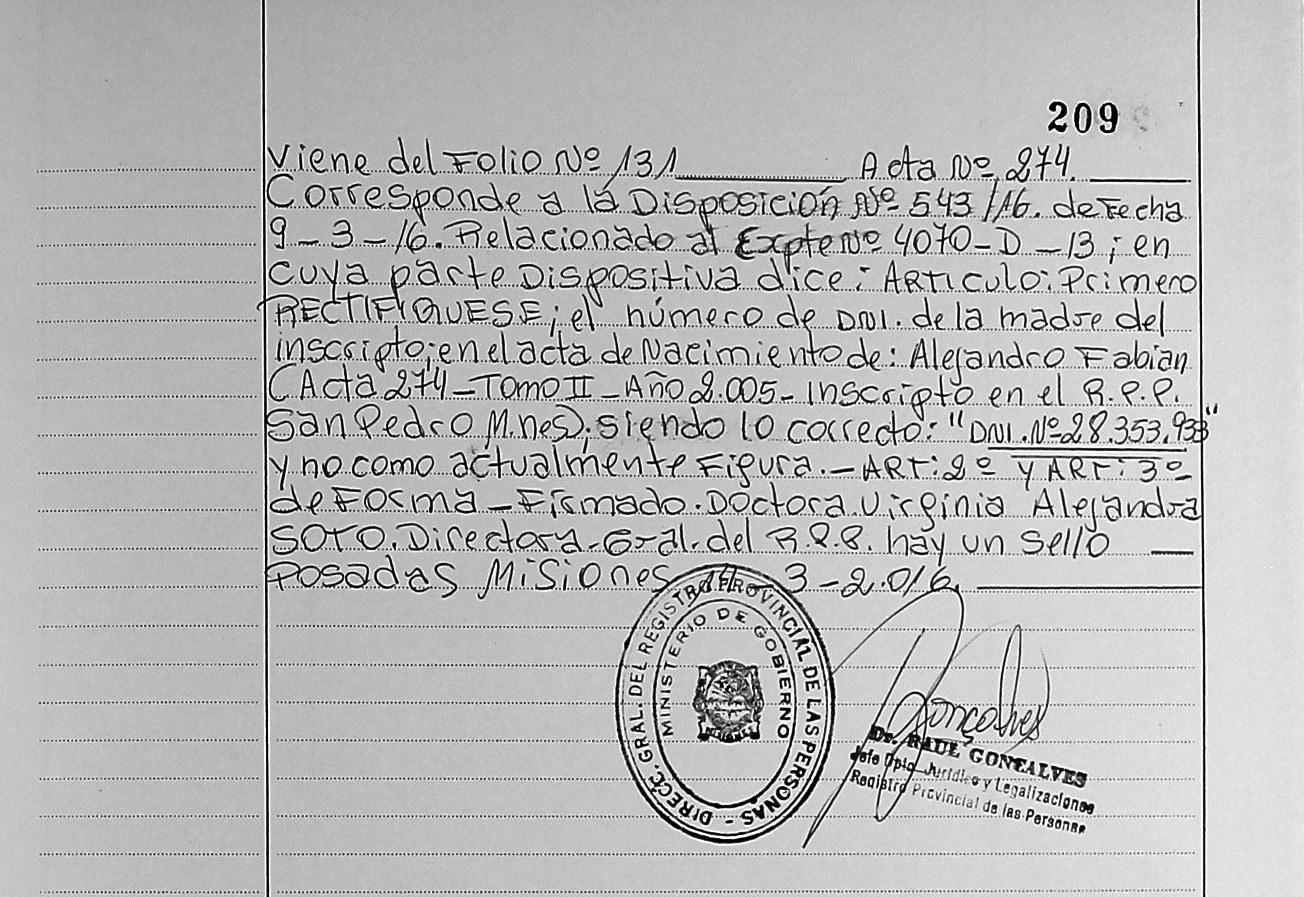 209
Viene del Folio Nº 131 Acta Nº 274.
Corresponde a la Disposición Nº 543/16. de Fecha
9-3-16. Relacionado al Expte Nº 4070-D-13; en
cuya parte Dispositiva dice: ARTICULO: Primero
RECTIFIQUESE; el número de DNI. de la madre del
inscripto; en el acta de Nacimiento de: Alejandro Fabian
(Acta 274-Tomo II-Año 2.005-Inscripto en el R.P.P.
San Pedro M.nes); siendo lo correcto: "DNI. Nº 28.353.933"
y no como actualmente Figura.-ART: 2º Y ART: 3º
de Forma-Firmado. Doctora Virginia Alejandra
SOTO. Directora-Gral. del R.P.P. hay un sello
Posadas Misiones 3-2.016.
DIREC. GRAL. DEL REGISTRO PROVINCIAL DE LAS PERSONAS -
MINISTERIO DE GOBIERNO
MISIONES
Gonçalves
Dr. RAUL GONCALVES
Jefe Dpto. Jurídico y Legalizaciones
Registro Provincial de las Personas